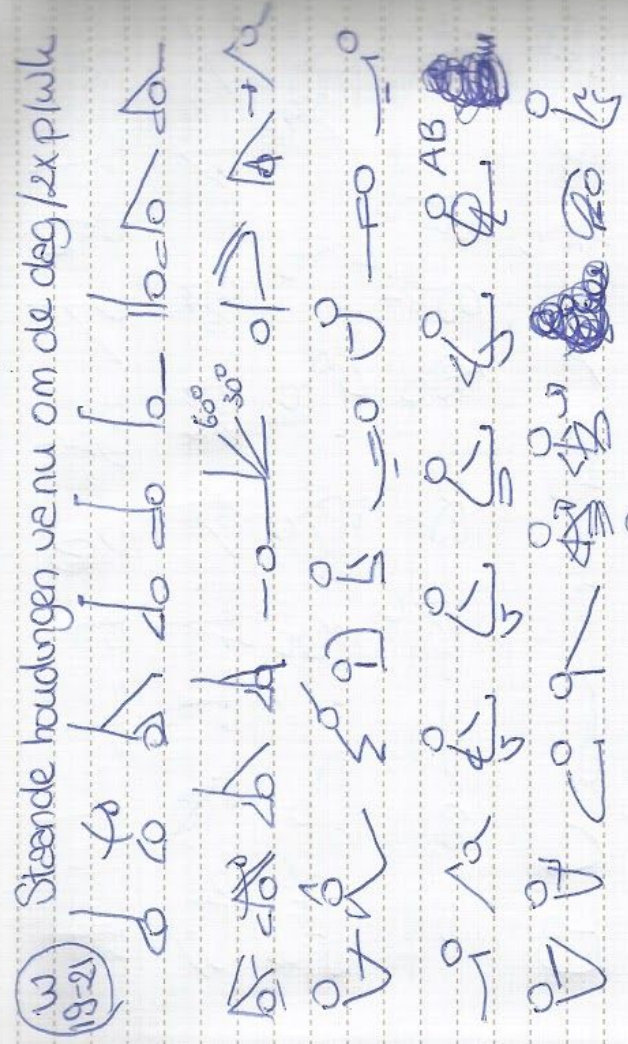 W
19-21
Staande houdingen va nu om de dag/2x p/wk
60°
30°
AB